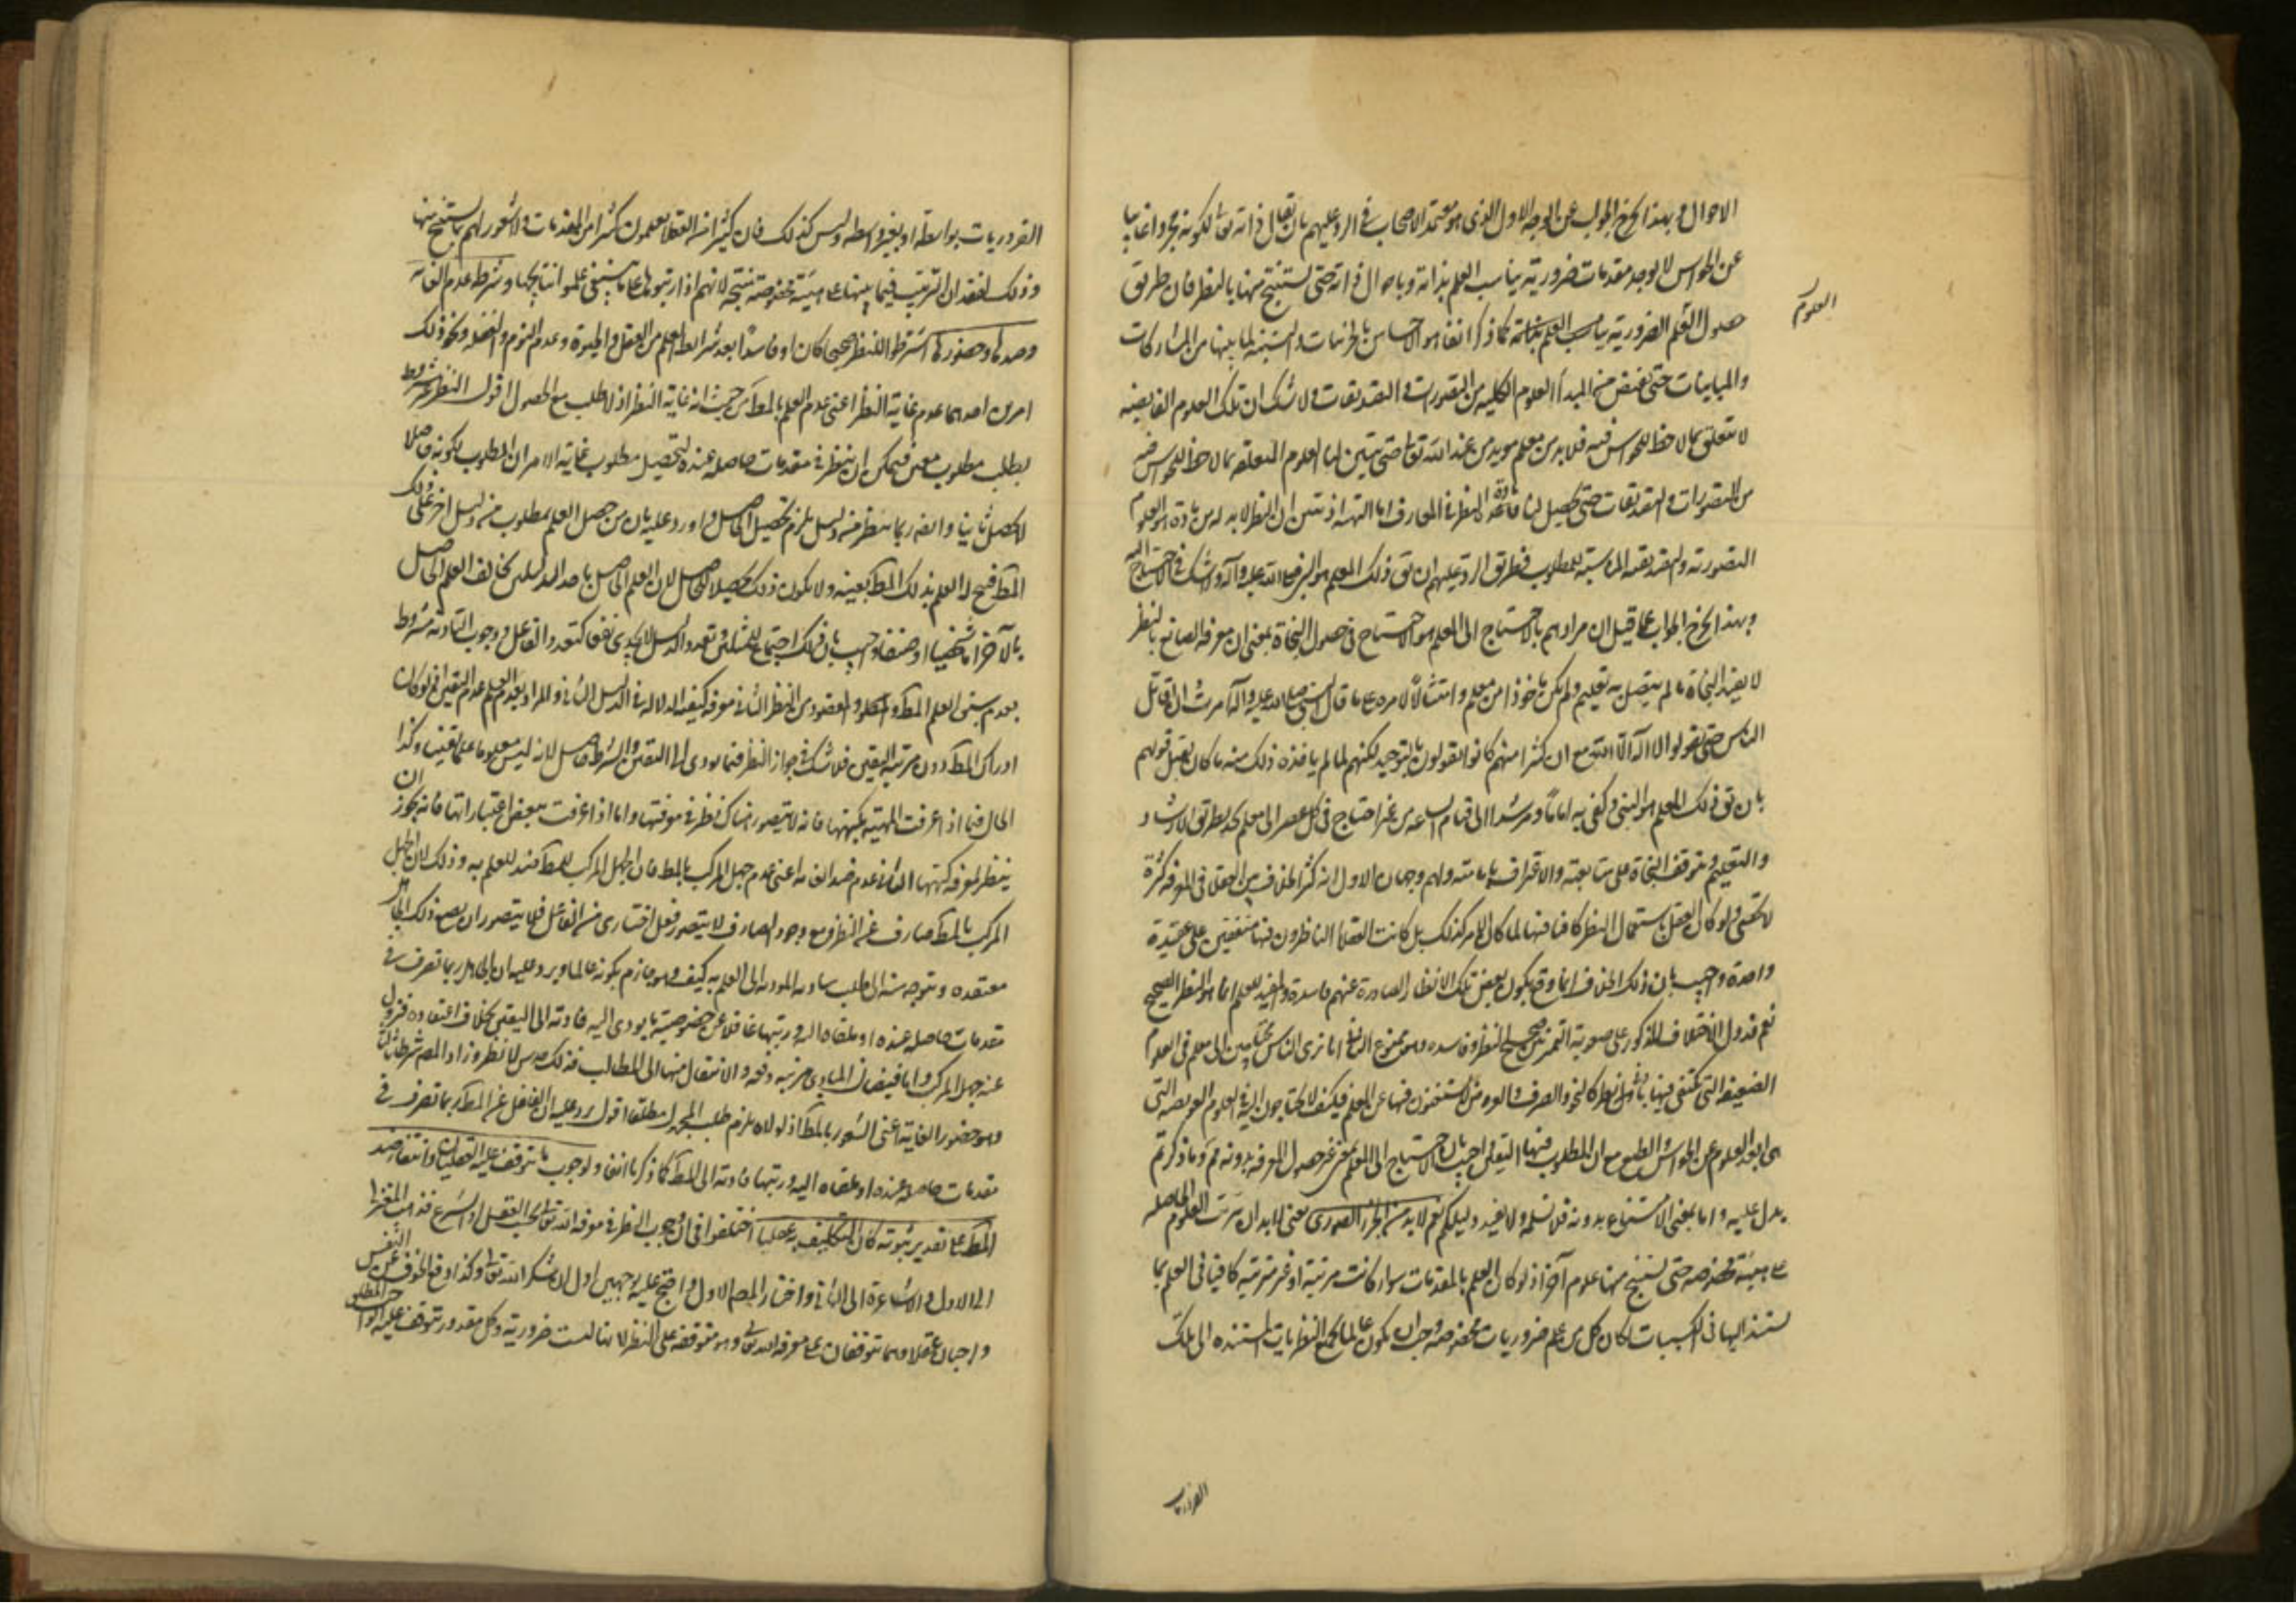 الاحوال وبهذا يخرج الجواب عن الوجه الاول الذى هو معتمد الاصحاب فى الرد عليهم بان يقال ذاته تع لكونه مجردا غايبا
عن الحواس لا يوجد مقدمات ضرورية يناسب العلم بذاته وباحوال ذاته حتى يستنتج منها بالنظر فان طريق
العلوم
حصول العلم الضرورية يناسب العلم كما ذكر انفا هو الاحساس بالجزئيات والتنبه لما بينها من المشاركات
والمباينات حتى تفيض من المبدأ العلوم الكلية من التصورات والتصديقات ولا شك ان تلك العلوم الفايضة
لا تتعلق بما لا حظ للحواس فيه فلا بد من معلم مويد من عند الله تع حتى يتبين لنا العلوم المتعلقة بما لا حظ للحواس فيه
من التصورات والتصديقات حتى يحصل لنا مادة النظر فى المعارف الالهية اذ تبين ان النظر لا بد له من مادة هو العلوم
التصورية والتصديقية المناسبة للمطلوب فطريق الرد عليهم ان يق ذلك المعلم هو النبى صلى الله عليه وآله ولا شك فى الاحتياج اليه
وبهذا يخرج الجواب عما قيل ان مرادهم بالاحتياج الى المعلم هو الاحتياج فى حصول النجاة بمعنى ان معرفة الصانع بالنظر
لا يفيد النجاة ما لم يتصل به تعليم ولم يكن ماخوذا من معلم وامتثالا لامره على ما قال النبى صلى الله عليه وآله امرت ان اقاتل
الناس حتى يقولوا لا اله الا الله مع ان كثيرا منهم كانوا يقولون بالتوحيد لكنهم لما لم ياخذوا ذلك منه ما كان يقبل قولهم
بان يق ذلك المعلم هو النبى وكفى به اماما ومرشدا الى قيام الساعة من غير احتياج فى كل عصر الى معلم يجدد طريق الارشاد
والتعليم ويتوقف النجاة على متابعته والاعتراف بامامته ولهم وجهان الاول انه كثر الخلاف بين العقلا فى المعرفة كثرة
لا تحصى ولو كان العقل باستعمال النظر كافيا فيها لما كان الامر كذلك بل كانت العقلا الناظرون فيها متفقين على عقيدة
واحدة واجيب بان ذلك الخلاف انما وقع لكون بعض تلك الانظار الصادرة عنهم فاسدة والمفيد للعلم انما هو النظر الصحيح
نعم قد دل الاختلاف المذكور على صعوبة التمييز بين صحيح النظر وفاسده وهو ممنوع الثانى انا نرى الناس محتاجين الى معلم فى العلوم
الضعيفة التى يكتفى فيها بادنى نظر كالنحو والصرف والعروض لا يستغنون فيها عن المعلم فكيف لا يحتاجون اليه فى العلوم العويصة التى
هى ابعد العلوم عن الحواس والطبع مع ان المطلوب فيها اليقين اجيب بان الاحتياج الى المعلم بمعنى عسر حصول المعرفة بدونه مم وما ذكرتم
يدل عليه واما بمعنى الامتناع بدونه فلا نسلمه ولا يفيد دليلكم نعم لا بد من الجزء الصورى يعنى لا بد ان يترتب العلوم الحاصلة
على هيئة مخصوصة حتى يستنتج منها علوم آخر اذ لو كان العلم بالمقدمات سوا كانت مرتبة او غير مترتبة كافيا فى العلم بما
يستند اليها فى المكسبيات لكان كل من علم ضروريات مخصوصة وجب ان يكون عالما بجميع النظريات المستندة الى تلك
الضروريات
الضروريات بواسطة او بغير واسطة وليس كذلك فان كثيرا من العقلا يعلمون كثيرا من المقدمات ولا شعور لهم بما يستنتج منها
وذلك لفقدان الترتيب فيما بينها على هيئة مخصوصة منتجة لانهم اذا رتبوها على ما ينبغى علموا نتايجها وشرطه عدم الغاية
وضدها وحضورها اشترطوا للنظر صحيحا كان او فاسدا بعد شرائط العلم من العقل والحيوة وعدم النوم والغفلة ونحو ذلك
امرين احدهما عدم غاية النظر اعنى عدم العلم بالمط من حيث انه غاية النظر اذ لا طلب مع الحصول اقول النظر مشروط
بطلب مطلوب معين فيمكن ان ينظر فى مقدمات حاصلة عنده لتحصيل مطلوب غاية الامر ان المطلوب لكونه حاصلا
لا يحصل ثانيا وايضا ربما ينظر من دليل يلزم تحصيل الحاصل واورد عليه بان من حصل العلم بمطلوب من دليل اخر على ذلك
المط فيحصل له العلم بذلك المط بعينه ولا يكون ذلك تحصيلا للحاصل لان العلم الحاصل باحد الدليلين يخالف العلم الحاصل
بالآخر اما شخصيا او صنفا واجيب بان ذلك اجتماع المثلين وتعدد الدليل لا يجدى نفعا كتعدد الفاعل ووجوب التادية مشروط
بعدم سبق العلم بالمط والمقصود من النظر الثانى معرفة كيفية الدلالة فى الدليل الثانى والمراد بعدم العلم عدم اليقين اذ لو كان
ادراك المط دون مرتبة اليقين فلا شك فى جواز النظر فيما يودى الى اليقين والشرط حاصل لانه ليس معلوما علما يقينيا وكذا
الحال فيما اذا عرفت المهية بكنهها فانه لا يتصور هناك نظر فى معرفتها واما اذا عرفت ببعض اعتباراتها فانه يجوز ان
ينظر لمعرفة كنهها الثانى عدم ضد الغاية اعنى عدم جهل المركب بالمط فان الجهل المركب بالمط ضد للعلم به وذلك لان الجهل
المركب بالمط صارف عن النظر ومع وجود الصارف لا يتصور فعل اختيارى من الفاعل فلا يتصور ان يصح ذلك الجاهل
معتقده ويتوجه منه الى طلب مباديه المودية الى العلم به كيف وهو جازم بكونه عالما ويرد عليه ان الجاهل ربما تصرف فى
مقدمات حاصلة عنده او ملقاة اليه ورتبها غافلا عن خصوصية ما يودى اليه فادته الى اليقين بخلاف اعتقاده فيزول
عنه جهل المركب واما فيضان المبادى مرتبة دفعة والانتقال منها الى المطالب فذلك حدس لا نظر وزاد المصنف شرطا ثالثا
وهو حضور الغاية اعنى الشعور بالمط اذ لولاه يلزم طلب المجهول مطلقا اقول يرد عليه ان الغافل عن المط ربما تصرف فى
مقدمات حاصلة عنده او ملقاة اليه ورتبها فادته الى المط كما ذكرنا انفا ولوجوب ما يتوقف عليه العقليان وانتفاء ضد
المط على تقدير ثبوته كان التكليف به عقليا اختلفوا فى ان وجوب النظر فى معرفة الله تع بحسب العقل او الشرع فذهب المعتزلة
الى الاول والاشاعرة الى الثانى واختار المصنف الاول واحتج عليه بوجهين اول ان شكر الله تع وكذا دفع الخوف عن النفس
واجبان عقلا وهما يتوقفان على معرفة الله تع وهو متوقفة على النظر لانها ليست ضرورية وكل مقدور يتوقف عليه الواجب المطلق